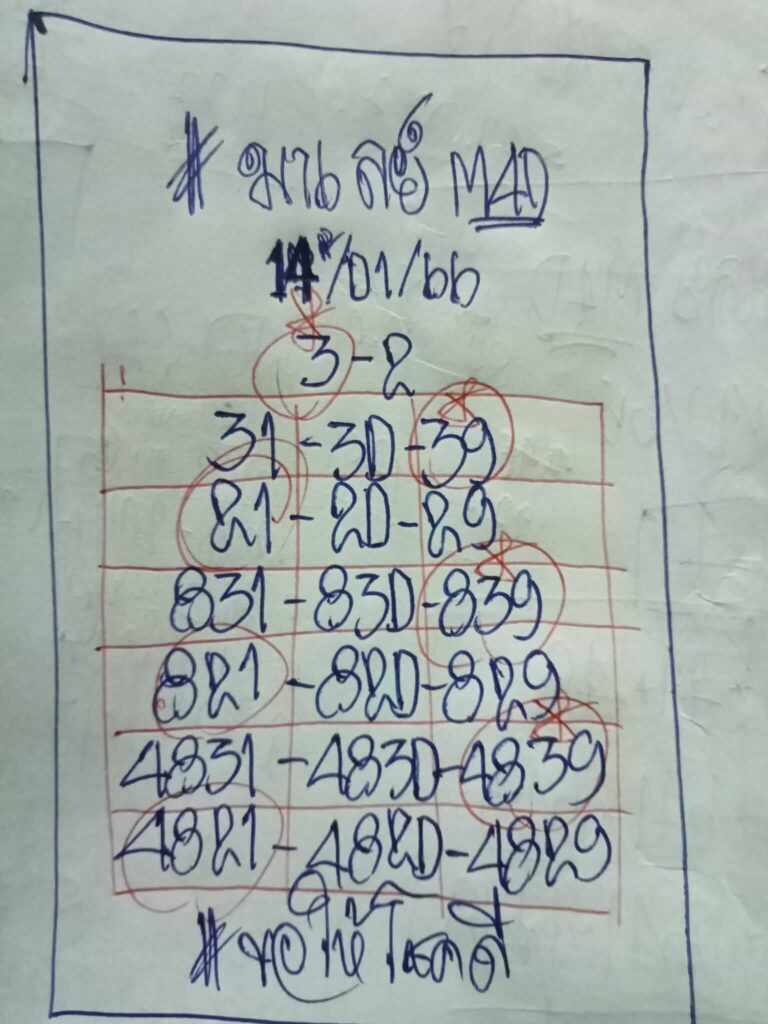 # มาเลย์ M4D
14/01/66
3-2
31-30-39
21-20-29
831-830-839
821-820-829
4831-4830-4839
4821-4820-4829
#ขอให้โชคดี